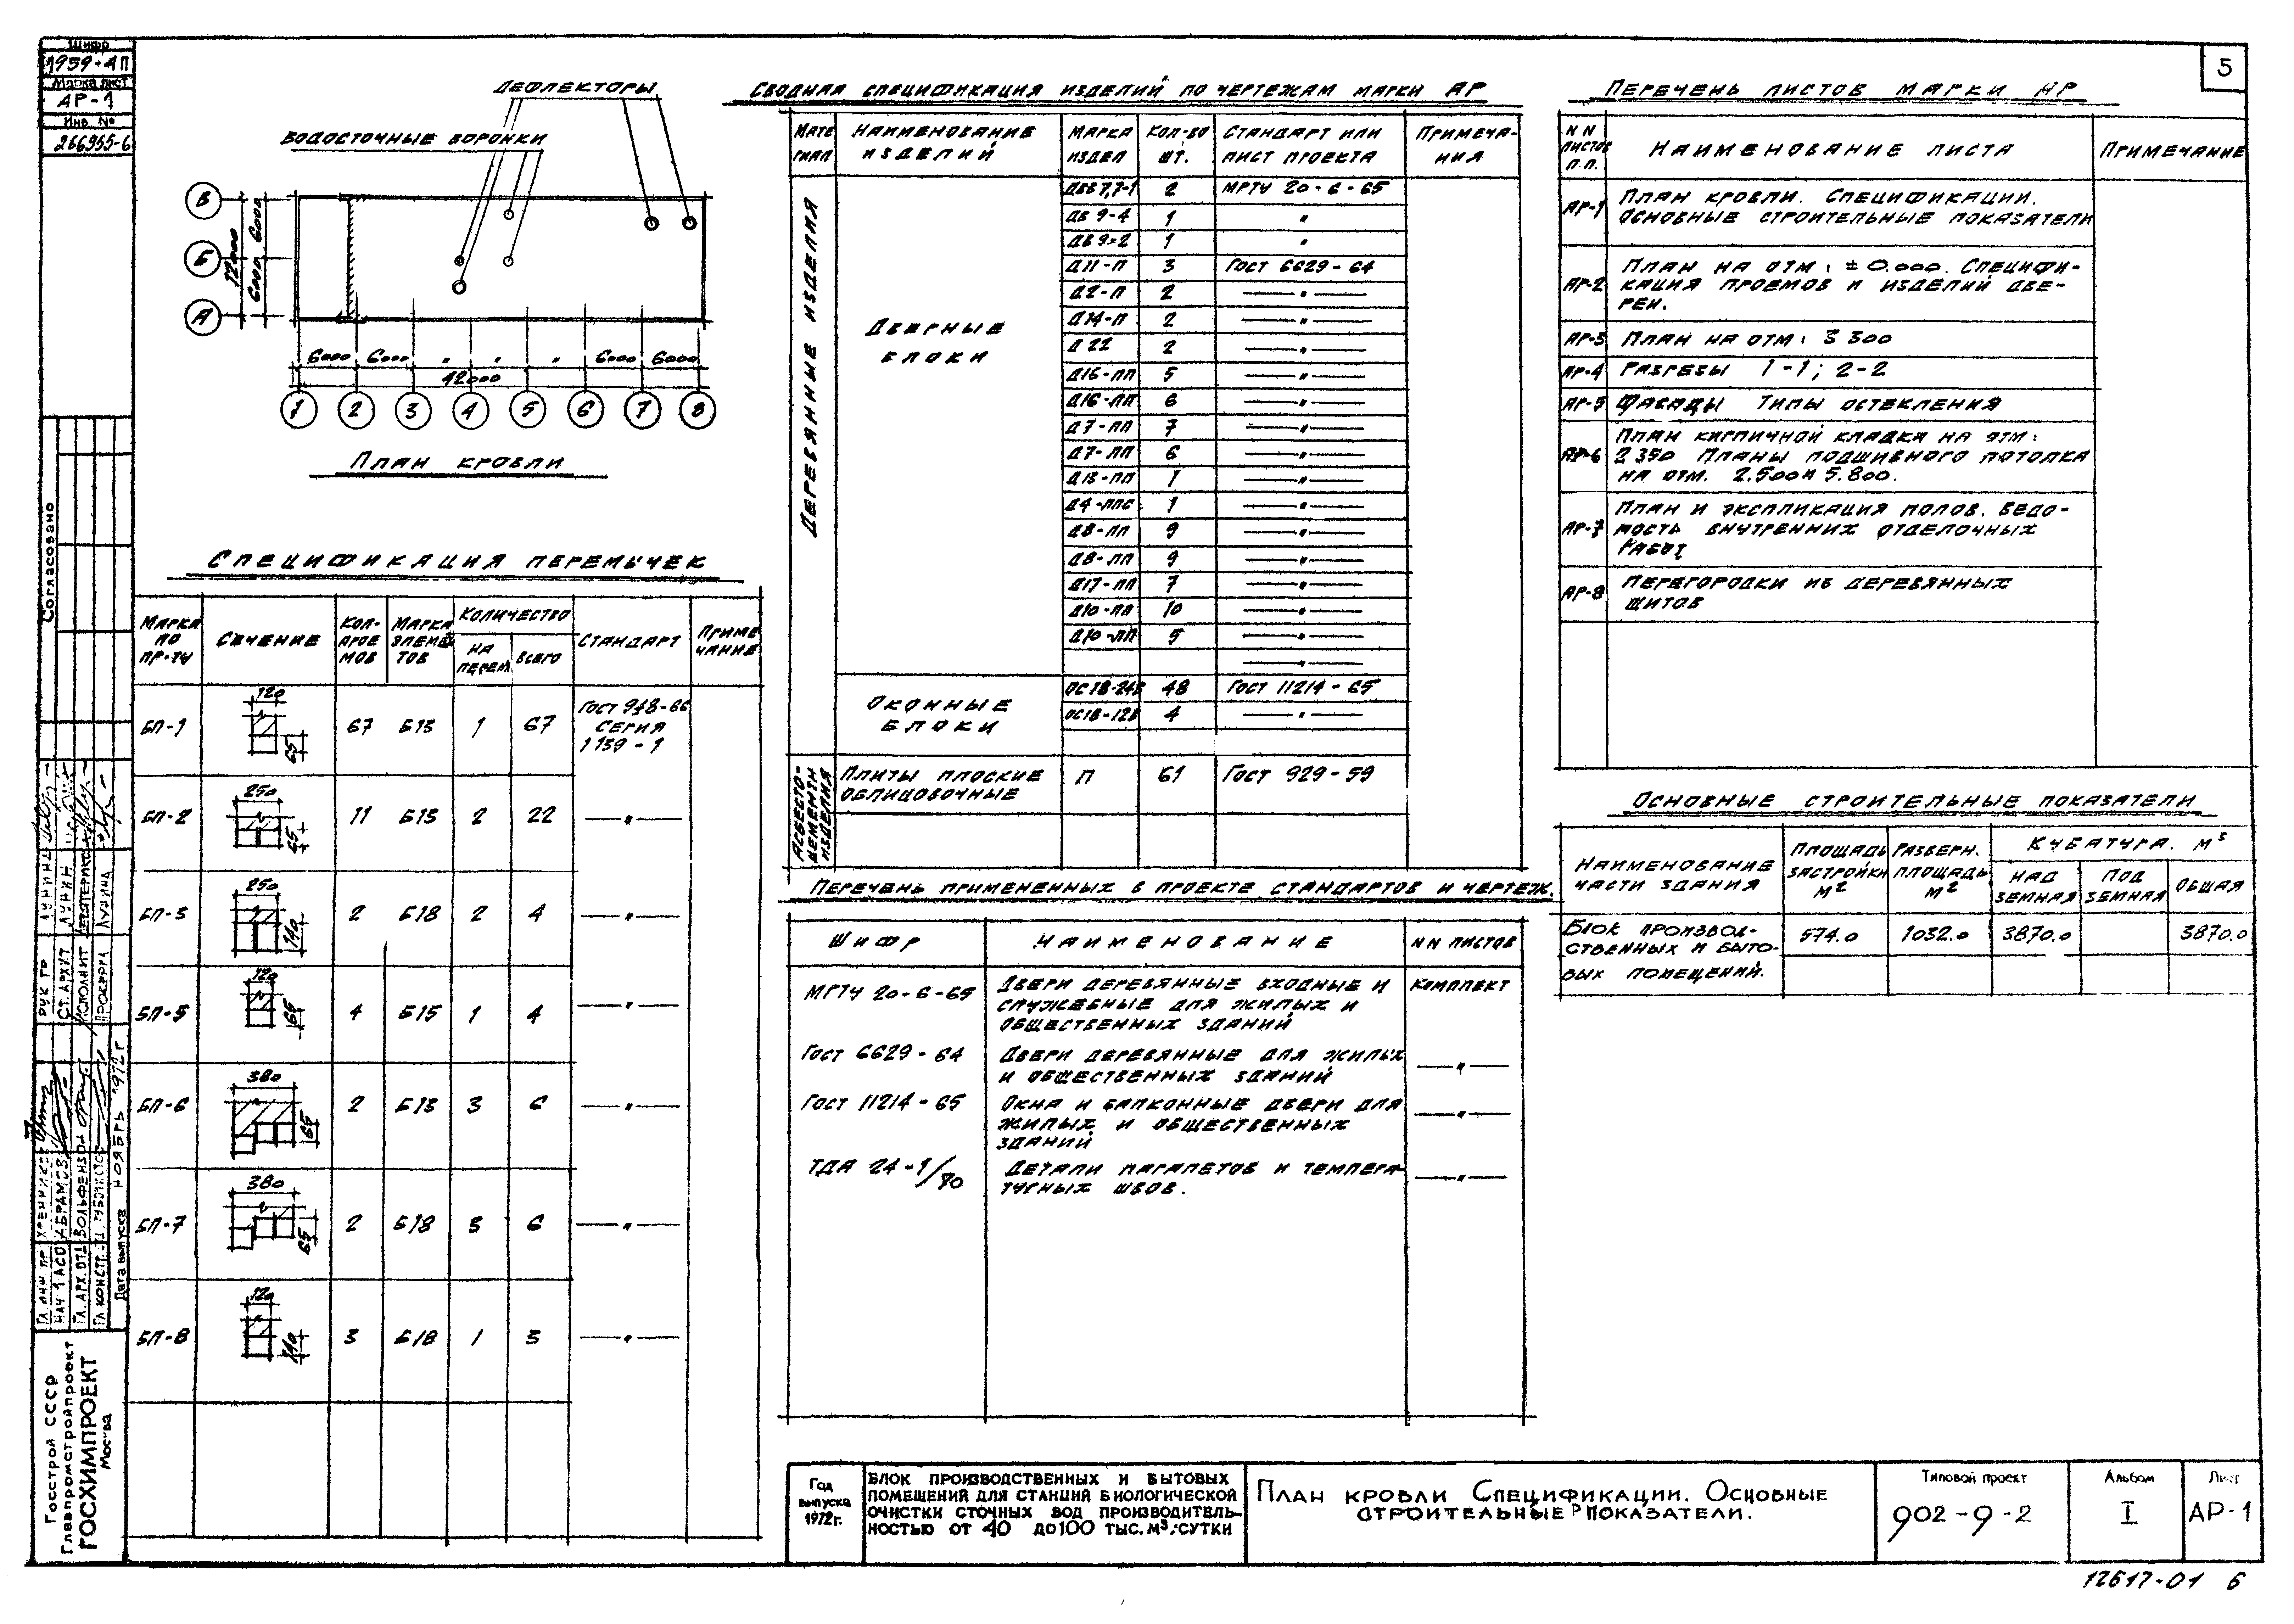 Шифр
1959-АП
Марка лист
АР-1
Инв. №
266955-6
5
Дефлекторы
Водосточные воронки
В
Б
А
12000
6000 6000
6000 6000 " " " 6000 6000
42000
1 2 3 4 5 6 7 8
План кровли
Спецификация перемычек
Марка по пр-ту
Сечение
Кол. прое мов
Марка элемен тов
Количество
на перем.
всего
Стандарт
Приме чание
БП-1 120 65 67 Б13 1 67 Гост 948-66 Серия 1139-1
БП-2 250 65 11 Б13 2 22 —"—
БП-3 250 140 2 Б18 2 4 —"—
БП-5 120 65 4 Б15 1 4 —"—
БП-6 380 65 2 Б13 3 6 —"—
БП-7 380 65 2 Б18 3 6 —"—
БП-8 120 140 3 Б18 1 3 —"—
Сводная спецификация изделий по чертежам марки АР
Мате риал
Наименование изделий
Марка издел
Кол-во шт.
Стандарт или лист проекта
Примеча- ния
Деревянные изделия
Дверные блоки
2 МРТУ 20-6-65
ДВ 9-4 1 "
ДВ 9-2 1 "
Д11-П 3 Гост 6629-64
Д2-П 2 —"—
Д14-П 2 —"—
Д22 2 —"—
Д16-ПП 5 —"—
Д16-ЛП 6 —"—
Д7-ПП 7 —"—
Д7-ЛП 6 —"—
Д13-ПП 1 —"—
Д4-ППС 1 —"—
Д8-ПП 9 —"—
Д8-ЛП 9 —"—
Д17-ПП 7 —"—
Д10-ПП 10 —"—
Д10-ЛП 5 —"—
—"—
Оконные блоки
ОС18-24В 48 Гост 11214-65
ОС18-12В 4 —"—
Асбесто- цементн изделия
Плиты плоские облицовочные
П 61 Гост 929-59
Перечень примененных в проекте стандартов и чертеж.
Шифр
Наименование
NN листов
МРТУ 20-6-65 Двери деревянные входные и Комплект
служебные для жилых и
общественных зданий
Гост 6629-64 Двери деревянные для жилых
и общественных зданий —"—
Гост 11214-65 Окна и балконные двери для
жилых и общественных —"—
зданий
ТДА 24-1/70 Детали парапетов и темпера-
турных швов. —"—
Перечень листов марки АР
NN листов п.п.
Наименование листа
Примечание
АР-1 План кровли. Спецификации.
Основные строительные показатели
АР-2 План на отм: ±0.000. Специфи-
кация проемов и изделий две-
рей.
АР-3 План на отм: 3 300
АР-4 Разрезы 1-1; 2-2
АР-5 Фасады Типы остекления
АР-6 План кирпичной кладки на отм:
2 350 Планы подшивного потолка
на отм. 2.500 и 5.800.
АР-7 План и экспликация полов. Ведо-
мость внутренних отделочных
работ
АР-8 Перегородки из деревянных
щитов
Основные строительные показатели
Наименование части здания
Площадь застройки м²
Разверн. площадь м²
Кубатура. м³
над земная
под земная
общая
Блок производ- 574.0 1032.0 3870.0 3870.0
ственных и быто-
вых помещений.
Согласовано
Рук гр Лунина
Ст. архит Лунин
Исполнит
Проверил Лунина
Гл. инж пр
Нач 1 АСО Абрамов
Гл. арх. отд Вольфензон
Гл констр.
Дата выпуска ноябрь 1972 г
Госстрой СССР
Главпромстройпроект
ГОСХИМПРОЕКТ
Москва
Год выпуска 1972г.
Блок производственных и бытовых
помещений для станций биологической
очистки сточных вод производитель-
ностью от 40 до 100 тыс. м³/сутки
План кровли Спецификации. Основные
строительные показатели.
Типовой проект
902-9-2
Альбом
I
Лист
АР-1
12617-01 6